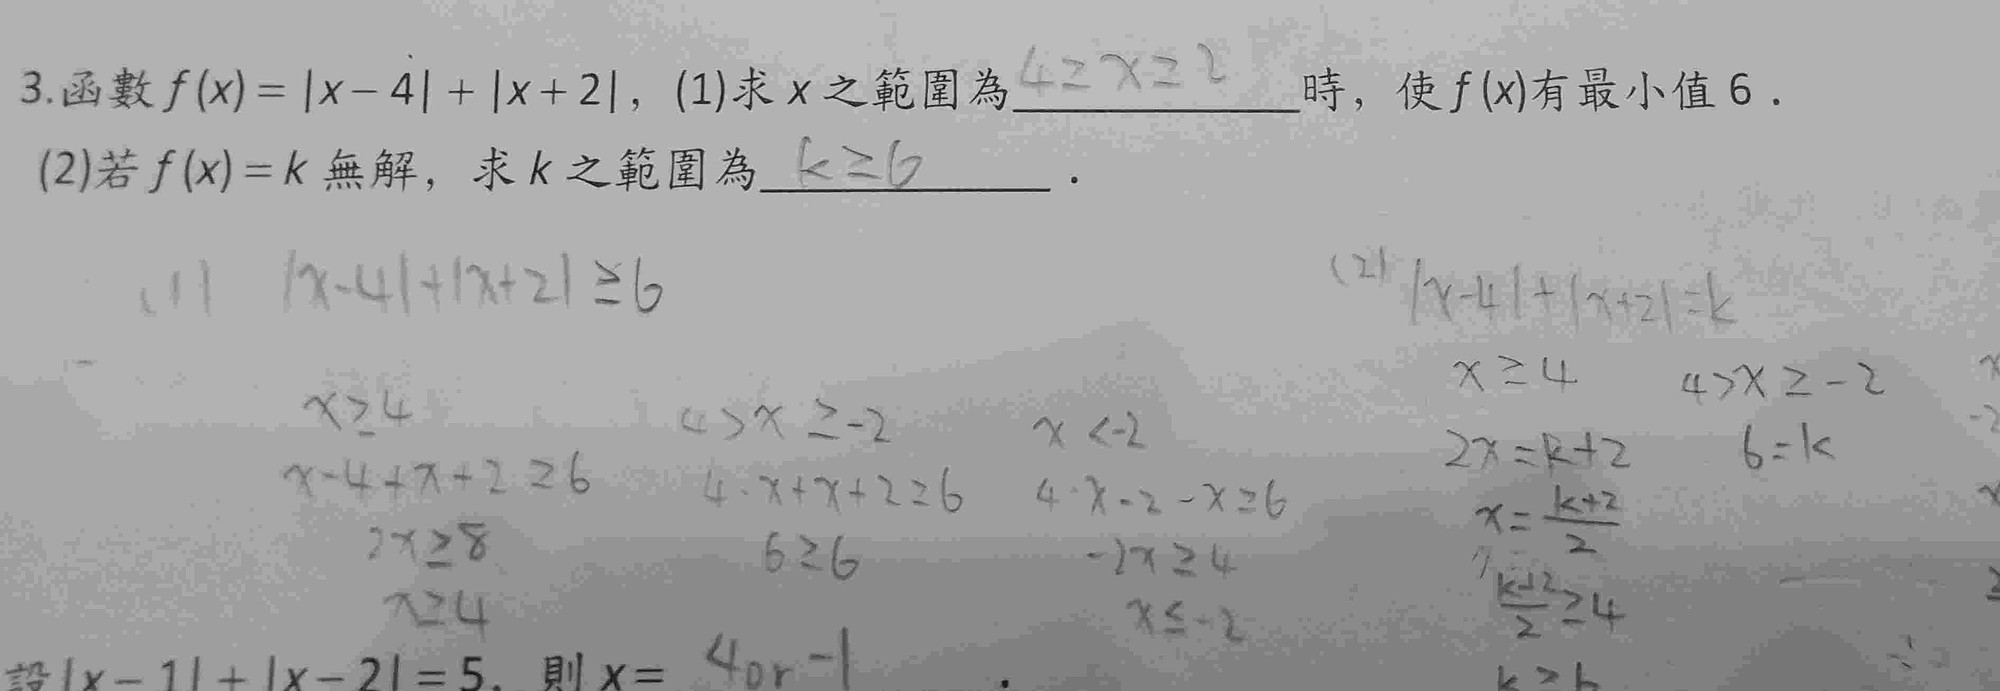 3.函數 f(x) = |x-4| + |x+2|, (1)求 x 之範圍為 4≥x≥2 時, 使 f(x)有最小值 6.
(2)若 f(x) = k 無解, 求 k 之範圍為 k≥6 .
(1) |x-4|+|x+2| ≥6
x≥4
x-4+x+2 ≥6
2x≥8
x≥4
4>x ≥-2
4-x+x+2≥6
6≥6
x<-2
4-x-2-x≥6
-2x≥4
x≤-2
(2) |x-4|+|x+2|=k
x≥4
2x=k+2
x=k+2/2
k+2/2≥4
k≥6
4>x≥-2
6=k
設|x-1|+|x-2|=5, 則 x= 4or-1 .